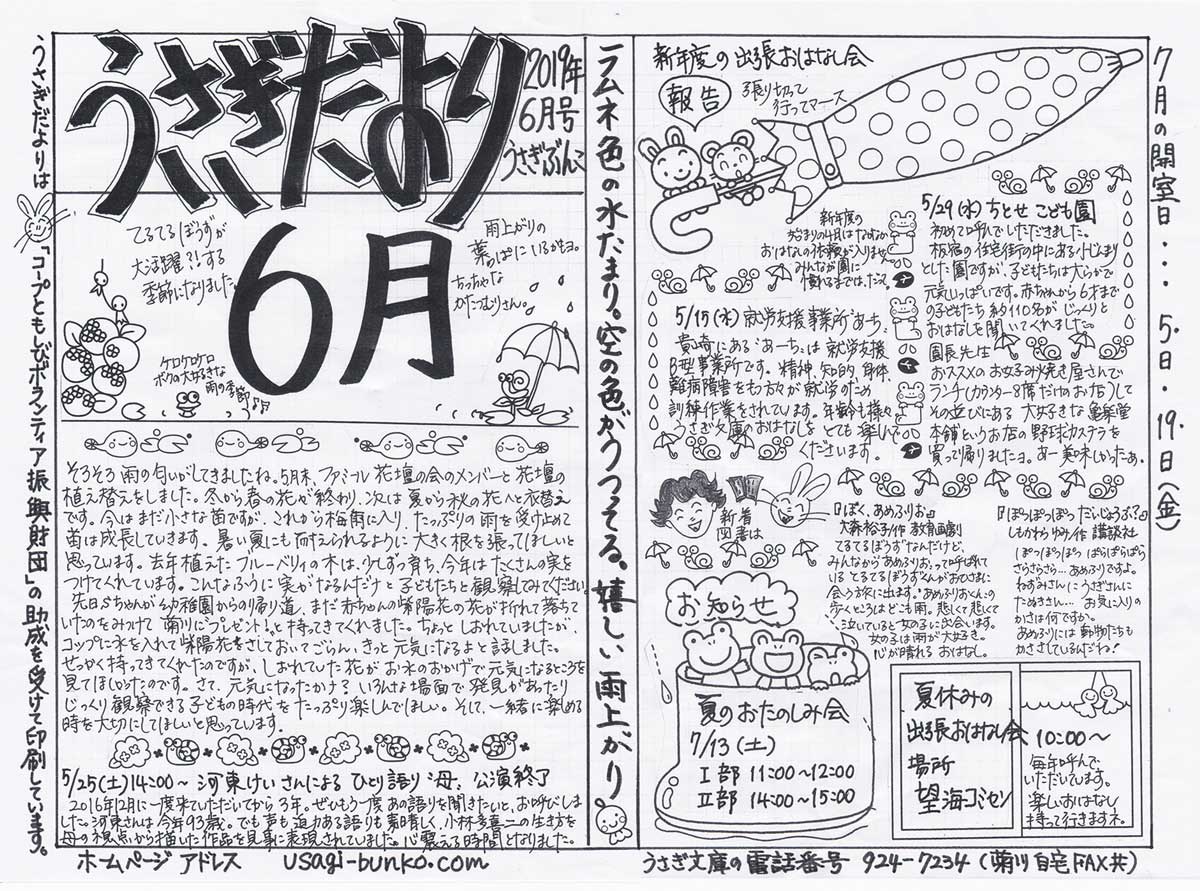 うさぎだより
2019年
6月号
うさぎぶんこ
6月
てるてるぼうずが
大活躍?!する
季節になりました。
雨上がりの
葉っぱにいるかも。
ちっちゃな
かたつむりさん。
ケロケロケロ
ボクの大好きな
雨の季節♪♪
そろそろ雨の匂いがしてきましたね。5月末、ファミール花壇の会のメンバーと花壇の
植え替えをしました。冬から春の花が終わり、次は夏から秋の花へと衣替え
です。今はまだ小さな苗ですが、これから梅雨に入り、たっぷりの雨を受け止めて
苗は成長していきます。暑い夏にも耐えられるように大きく根を張ってほしいと
思っています。去年植えたブルーベリィの木は、少しずつ育ち、今年はたくさんの実を
つけてくれています。こんなふうに実がなるんだけと子どもたちと観察してみてください。
先日Sちゃんが幼稚園からの帰り道、まだ赤ちゃんの紫陽花の花が折れて落ちて
いたのをみつけて「菊川にプレゼント!」と持ってきてくれました。ちょっとしおれていましたが、
コップに水を入れて紫陽花をさしておいてごらん、きっと元気になるよと話しました。
せっかく持ってきてくれたのですが、しおれていた花がお水のおかげで元気になるところを
見てほしかったのです。さて、元気になったかナ？いろんな場面で発見があったり
じっくり観察できる子どもの時代をたっぷり楽しんでほしい。そして、一緒に楽しめる
時を大切にしてほしいと思っています。
5/25(土)14:00～河東けいさんによるひとり語り「母」公演終了
2016年2月に一度来ていただいてから3年。ぜひもう一度あの語りを聞きたいと、お呼びしま
した。河東さんは今年93歳。でも声も迫力ある語りも素晴しく、小林多喜二の生き方を
母の視点から描いた作品を見事に表現されていました。心震える時間となりました。
ホームページアドレス usagi-bunko.com
うさぎだよりは「コープともしびボランティア振興財団」の助成を受けて印刷しています。
ラムネ色の水たまり。空の色がうつってる。嬉しい雨上がり
新年度の出張おはなし会
報告
張り切って
行ってマース
新年度の
始まりの4月はなかなか
おはなしの依頼が入りません。
みんなが園に
慣れるまでは、だネ。
5/15(水)就労支援事業所「あーち」
貴崎にある「あーち」は就労支援
B型事業所です。精神、知的、身体、
難病障害をもつ方々が就労のため
訓練作業をされています。年齢も様々。
うさぎ文庫のおはなしをとても楽しんで
くださいます。
5/29(水)ちとせこども園
初めて呼んでいただきました。
板宿の住宅街の中にある小じんまり
とした園ですが、子どもたちは大らかで
元気いっぱいです。赤ちゃんから6才まで
の子どもたち約110名がじっくりと
おはなしを聞いてくれました。
園長先生
おススメのお好み焼き屋さんで
ランチ(カウンター8席だけのお店)して
その並びにある大好きな亀楽堂
本舗というお店の野球カステラを
買って帰りましたョ。あー美味しかったぁ。
新着
図書は
『ぼく、あめふりお』
大森裕子作 教育画劇
てるてるぼうずなんだけど、
みんなからあめふりおって呼ばれて
いるてるてるぼうずくんがおひさまに
会う旅に出ます。あめふりおくんの
歩くところはどこも雨。悲しくて悲しくて
泣いていると女の子に出会います。
女の子は雨が大好き。
心が晴れるおはなし。
『ぽつぽつぽつ だいじょうぶ？』
しもかわらゆみ作 講談社
ぽつぽつぽつ ぱらぱらぱら
さらさらさら…あめふりですよ。
ねずみさんにうさぎさんに
たぬきさん… お気に入りの
かさは何ですか。
あめふりには動物たちも
かささしているんだね!
お知らせ
夏のおたのしみ会
7/13(土)
I部 11:00～12:00
II部 14:00～15:00
夏休みの
出張おはなし会
場所
望海コミセン
10:00～
毎年呼んで
いただいています。
楽しいおはなし
持って行きますネ。
うさぎ文庫の電話番号 924-7234(菊川自宅FAX共)
7月の開室日・・・5日・19日(金)